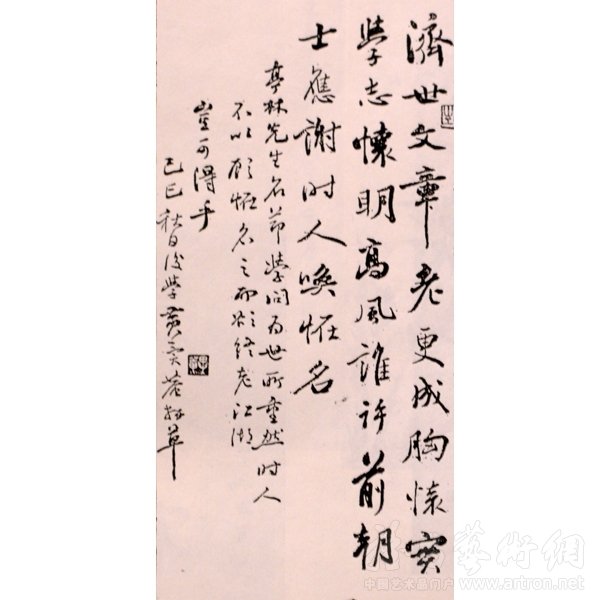 濟世文章老更成胸懷實
學志懷明高風誰許前朝
士應謝时人喚恠名
亭林先生名節學問为世所重然时人
不以顧恠名之而欲終老江湖
豈可得乎
己巳秋日後學黃奕菴拙草
中國艺术品门户 www.artron.net
藝術網